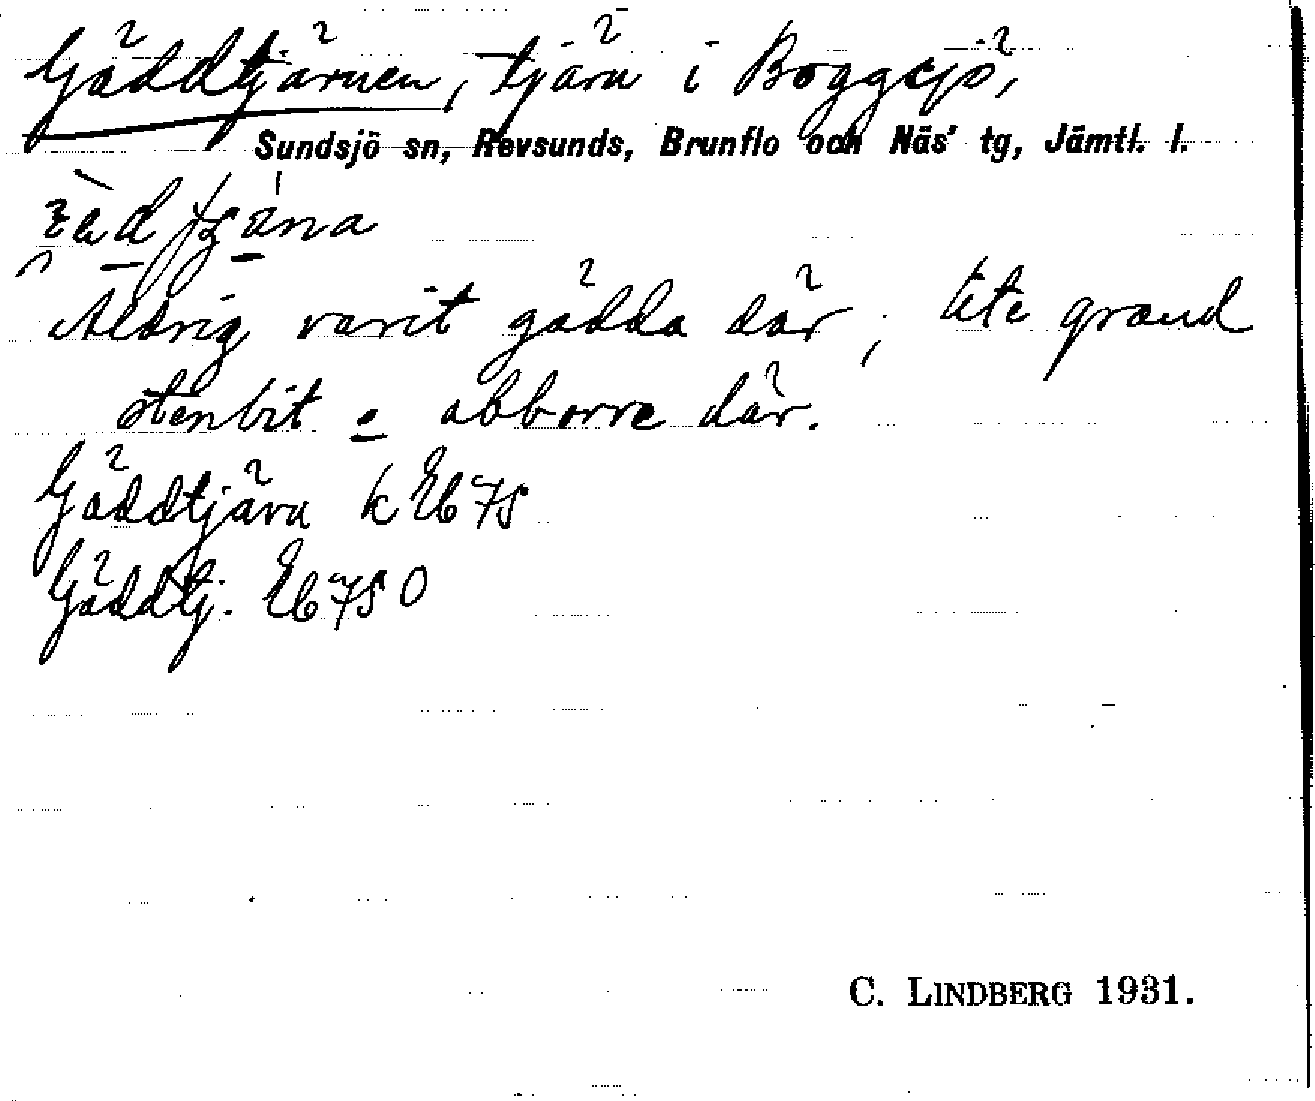 Gäddtjärnen, tjärn i Boggsjö,
Sundsjö sn, Revsunds, Brunflo och Näs' tg, Jämtl. l.
Aldrig varit gädda där, lite grand
stenbit o abborre där.
Gäddtjärn k Eb 75
Gäddtj. Eb 75 O
C. LINDBERG 1931.